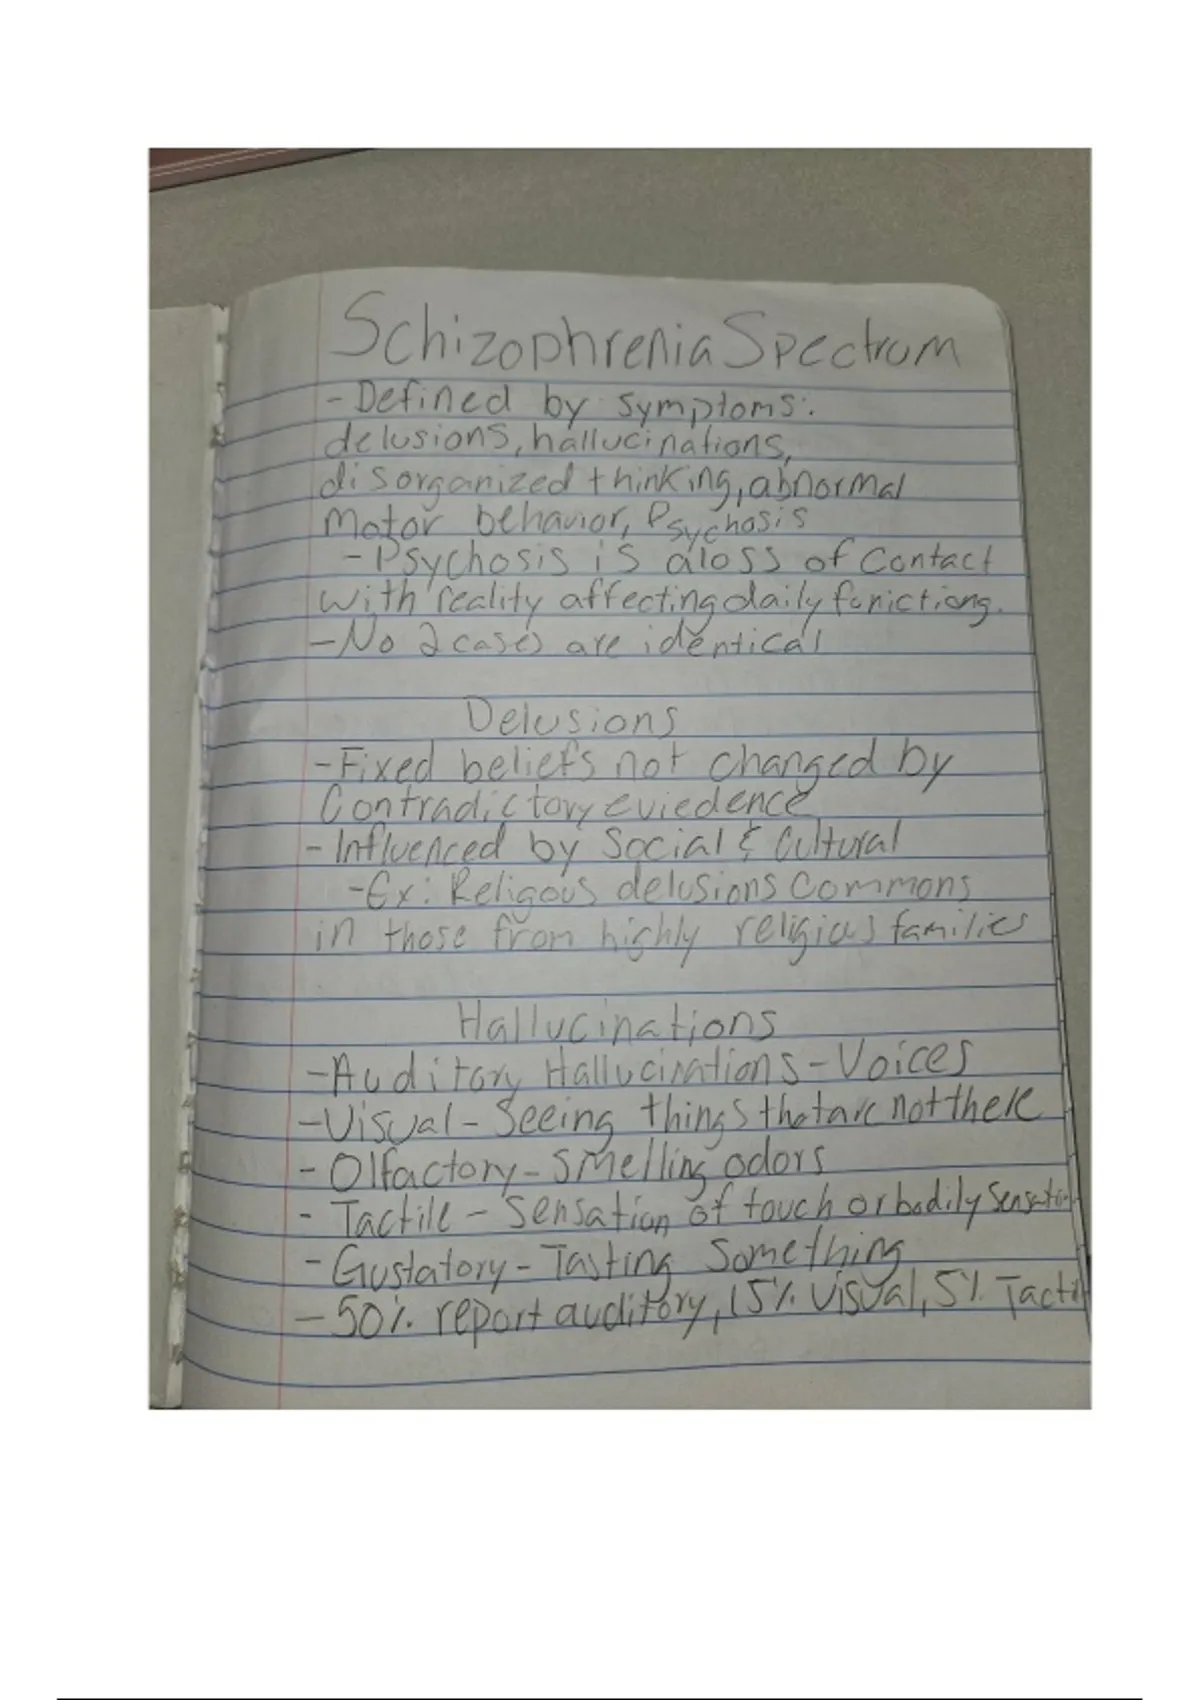 Schizophrenia Spectrum
- Defined by symptoms:
delusions, hallucinations,
disorganized thinking, abnormal
motor behavior, Psychosis
- Psychosis is a loss of contact
with reality affecting daily functions.
- No 2 cases are identical
Delusions
- Fixed beliefs not changed by
Contradictory eviedence
- Influenced by Social & Cultural
- Ex: Religous delusions commons
in those from highly religious families
Hallucinations
- Auditory Hallucinations - Voices
- Visual - Seeing things that are not there
- Olfactory - Smelling odors
- Tactile - Sensation of touch or bodily
- Gustatory - Tasting something
- 50% report auditory, 15% visual, 5%